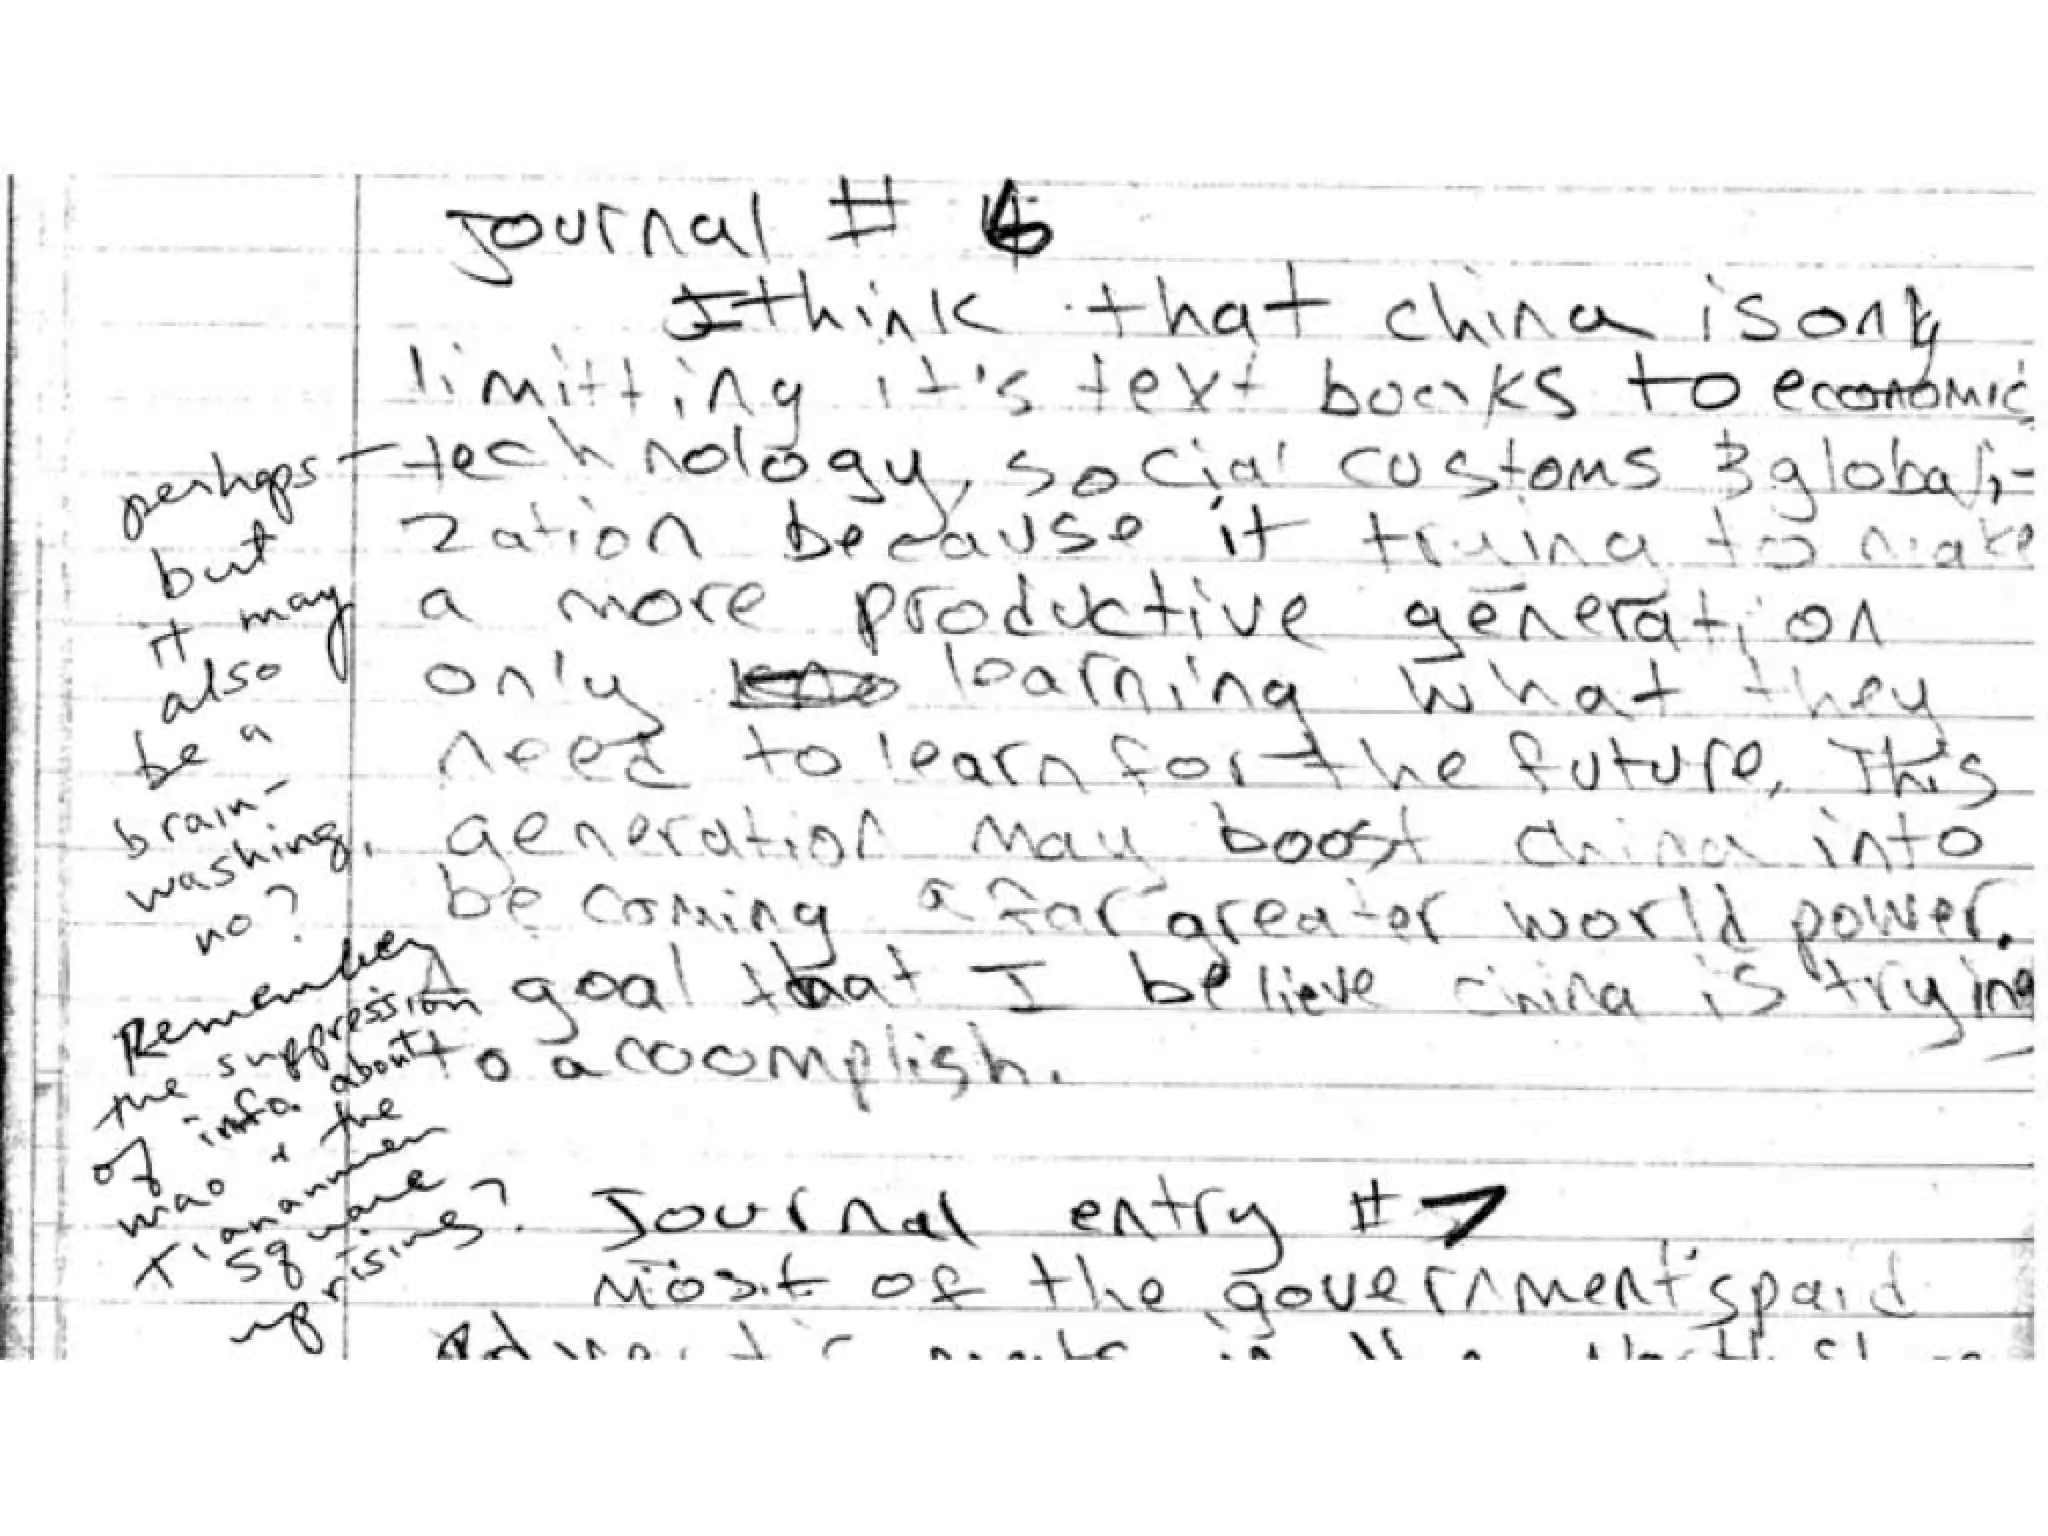 Journal # 6
I think that china is only
limitting it's text books to economic
technology, social customs & globali-
zation because it trying to make
a more productive generation
only learning what they
need to learn for the future. This
generation may boost china into
becoming a far greater world power.
A goal that I believe china is trying
to acoomplish.
perhaps -
but
it may
also
be a
brain-
washing,
no?
Remember
the suppression
of info. about
mao & the
Tiananmen
square
uprising?
Journal entry # 7
Most of the government's paid